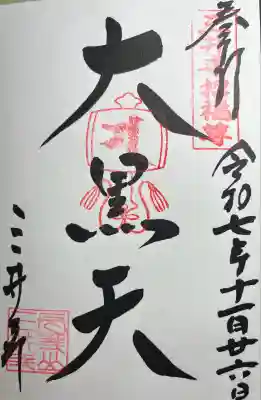 奉拝
令和七年十一月廿六日
大黒天
三井寺